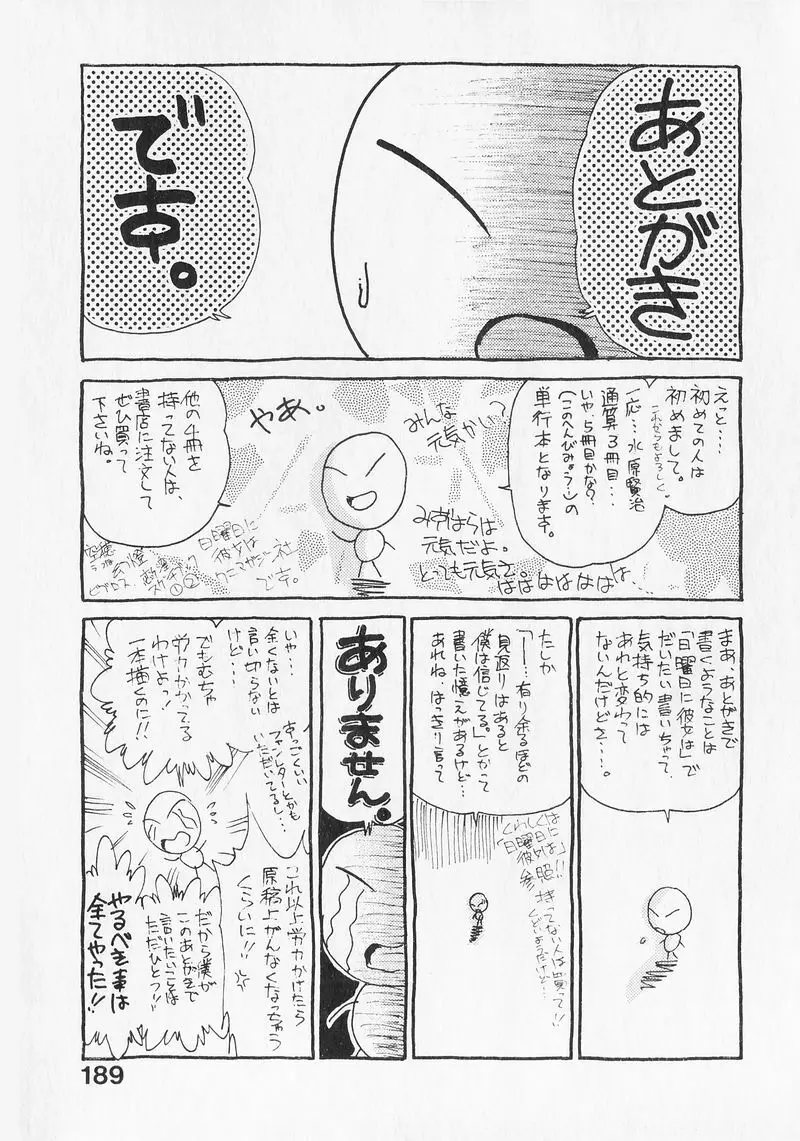 あとがき
です。
えっと…
初めての人は
初めまして。
これからもよろしく。
一応…水原賢治
通算3冊目…
いや、5冊目かな？
(このへんびみょう…)の
単行本となります。
みんな
元気かい？
やあ。
みずはらは
元気だよ。
とっても元気さ。
ははははははは…
他の4冊を
持ってない人は、
書店に注文して
ぜひ買って
下さいね。
日曜日に
彼女は
ワニマガジン社
です。
まあ、あとがきで
書くようなことは
「日曜日に彼女は」で
だいたい書いちゃって、
気持ち的には
あれと変わって
ないんだけどさ…。
たしか
「―!…有り余るほどの
見返りはあると
僕は信じてる。」とかって
書いた憶えがあるけど…
あれね、はっきり言って
くわしくは
「日曜日に
彼女は」
参照!!
持ってない人は買って!!
くどいようだけど…
ありません。
いや…
全くないとは
言い切らない
けど…
すっごくいい
ファンレターとかも
いただいてるし…
でもむちゃ
労力かかってる
わけよっ!
一本描くのに!!
これ以上労力かけたら
原稿上がんなくなっちゃう
くらいに!!
だから僕が
このあとがきで
言いたいことは
ただひとつ!!
やるべき事は
全てやった!!
189